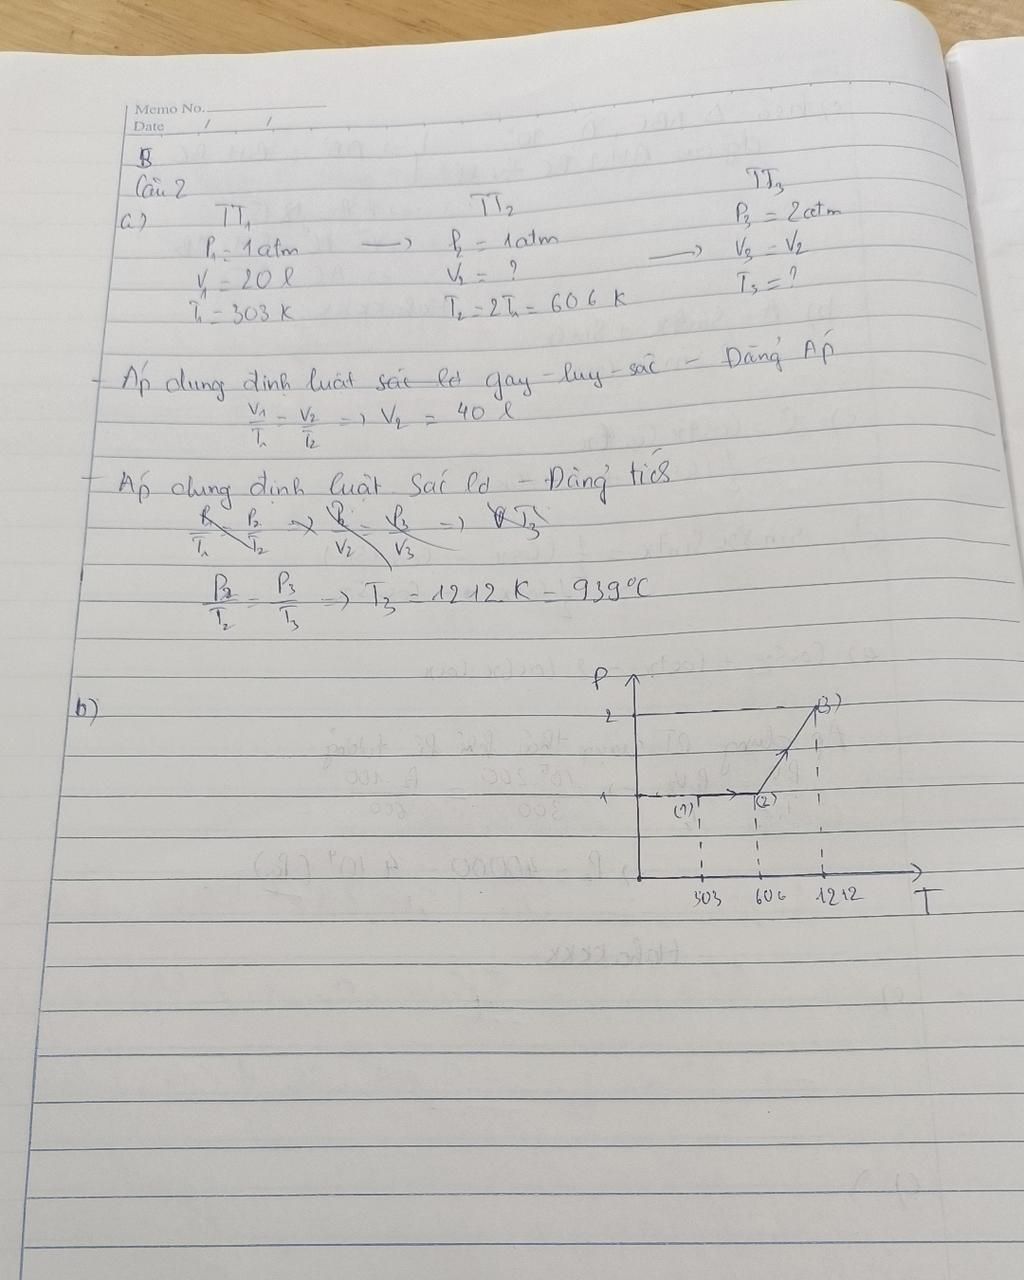 Memo No.
Date / /
B
Câu 2
a) TT₁ TT₂ TT₃
P₁ = 1atm → P₂ = 1atm → P₃ = 2atm
V₁ = 20 l V₂ = ? V₃ = V₂
T₁ = 303 K T₂ = 2T₁ = 606 K T₃ = ?
- Áp dụng định luật sác lơ gay - luy - sác - Đẳng Áp
V₁/T₁ = V₂/T₂ => V₂ = 40 l
- Áp dụng định luật Sác lơ - Đẳng tích
P₂/T₂ = P₃/T₃ => T₃ = 1212 K = 939°C
b)
P
2 (3)
1 (1) (2)
303 606 1212 T